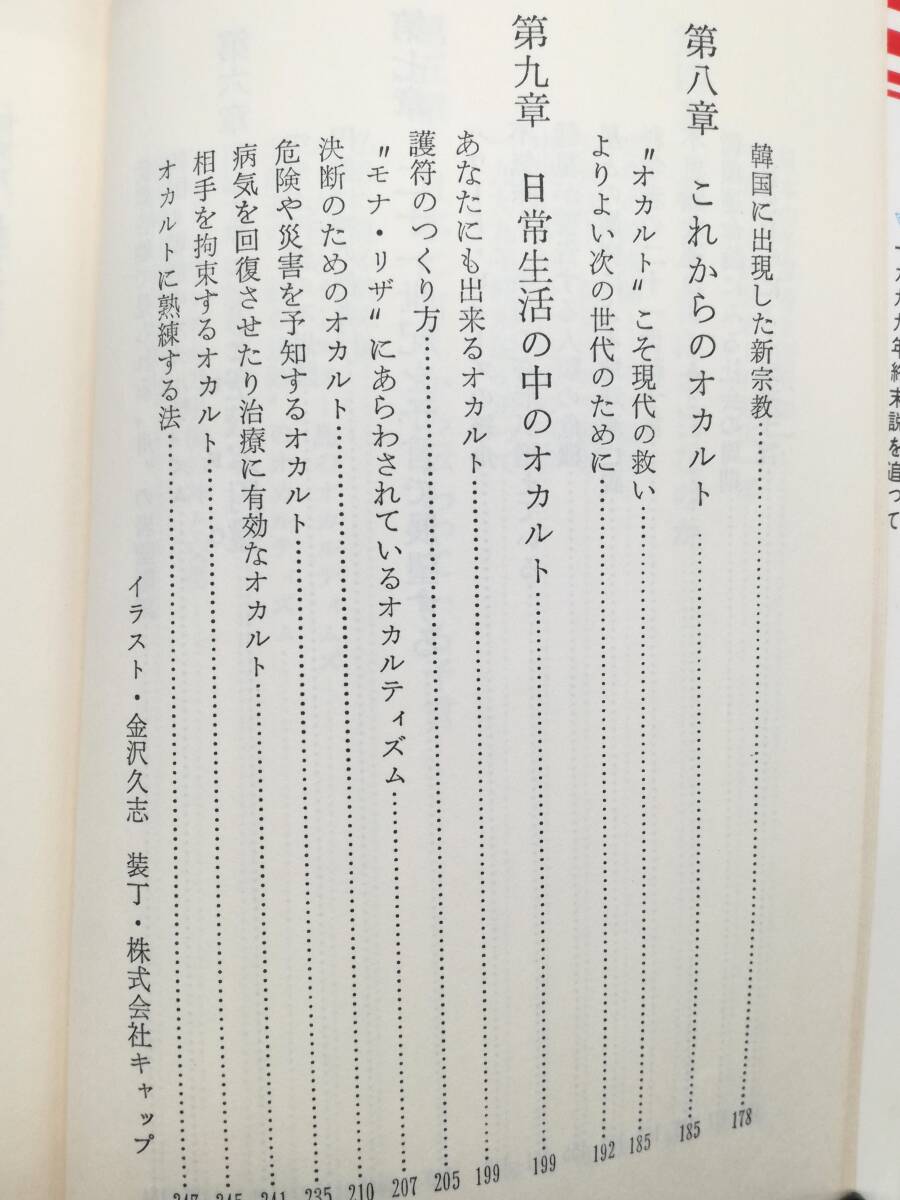 韓国に出現した新宗教……178
第八章 これからのオカルト……185
〃オカルト〃こそ現代の救い……185
よりよい次の世代のために……192
第九章 日常生活の中のオカルト……199
あなたにも出来るオカルト……199
護符のつくり方……205
〃モナ・リザ〃にあらわされているオカルティズム……207
決断のためのオカルト……210
危険や災害を予知するオカルト……235
病気を回復させたり治療に有効なオカルト……241
相手を拘束するオカルト……245
オカルトに熟練する法……247
イラスト・金沢久志 装丁・株式会社キャップ
年終末説を追って